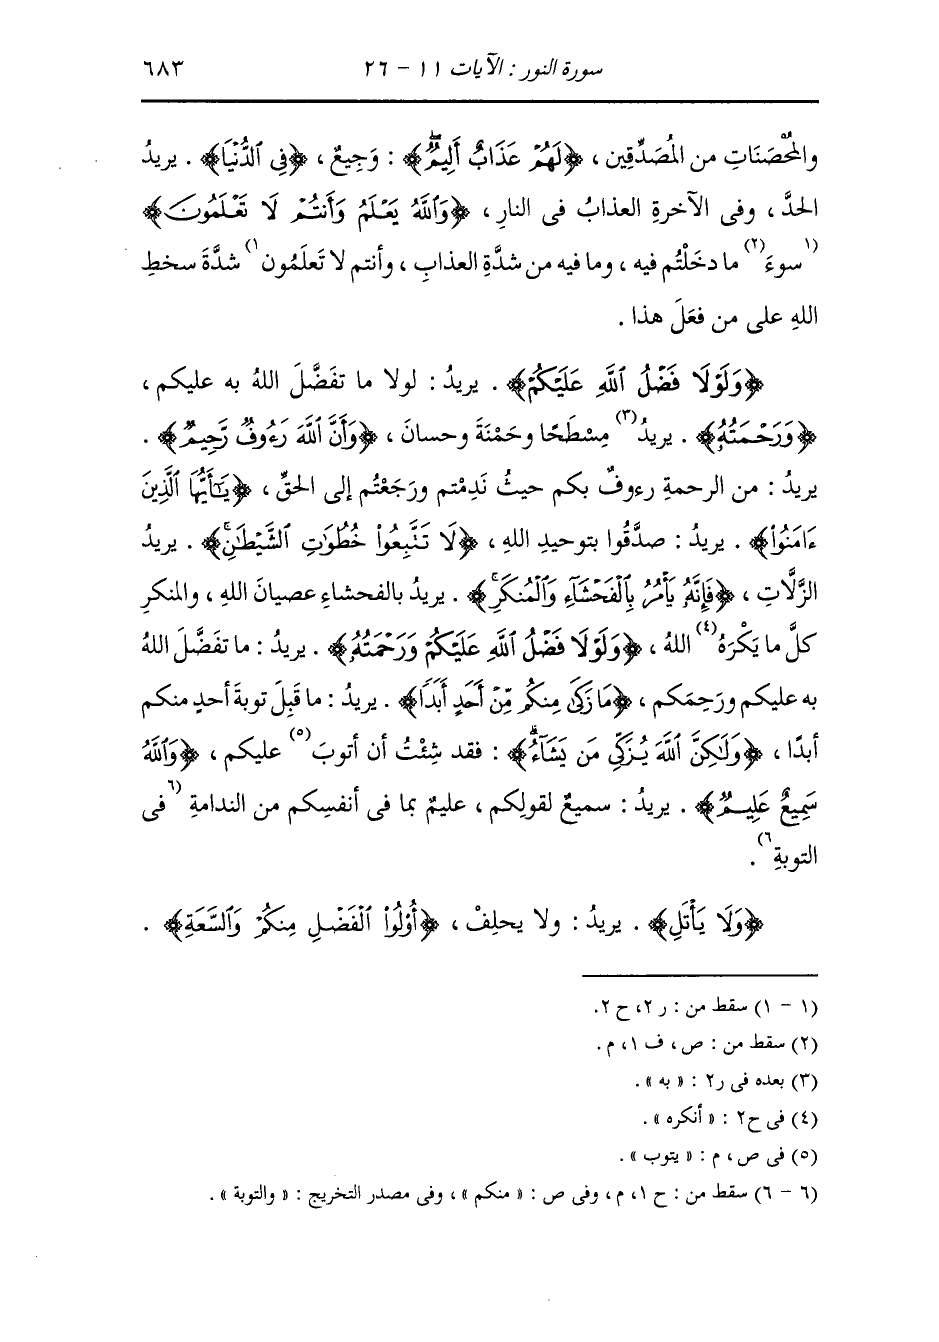 سورة النور : الآيات ١١ – ٢٦ ٦٨٣
والمُحْصَنَاتِ من المُصَدِّقِين ، ﴿لَهُمۡ عَذَابٌ أَلِيمٌۖ﴾ : وَجِيعٌ ، ﴿فِى ٱلدُّنۡيَا﴾ . يريدُ
الحدَّ ، وفى الآخرةِ العذابُ فى النارِ ، ﴿وَٱللَّهُ يَعۡلَمُ وَأَنتُمۡ لَا تَعۡلَمُونَ﴾
(١سوءَ(٢) ما دخَلْتُم فيه ، وما فيه من شدَّةِ العذابِ ، وأنتم لا تَعلَمُون١) شدَّةَ سخطِ
اللهِ على من فعَلَ هذا .
﴿وَلَوۡلَا فَضۡلُ ٱللَّهِ عَلَيۡكُمۡ﴾ . يريدُ : لولا ما تفَضَّلَ اللهُ به عليكم ،
﴿وَرَحۡمَتُهُۥ﴾ . يريدُ(٣) مِسْطَحًا وحَمْنَةَ وحسانَ ، ﴿وَأَنَّ ٱللَّهَ رَءُوفٌ رَّحِيمٌ﴾ .
يريدُ : من الرحمةِ رءوفٌ بكم حيثُ نَدِمْتم ورَجَعْتُم إلى الحقِّ ، ﴿يَٰٓأَيُّهَا ٱلَّذِينَ
ءَامَنُوا۟﴾ . يريدُ : صدَّقُوا بتوحيدِ اللهِ ، ﴿لَا تَتَّبِعُوا۟ خُطُوَٰتِ ٱلشَّيۡطَٰنِۚ﴾ . يريدُ
الزَّلَّاتِ ، ﴿فَإِنَّهُۥ يَأۡمُرُ بِٱلۡفَحۡشَآءِ وَٱلۡمُنكَرِۚ﴾ . يريدُ بالفحشاءِ عصيانَ اللهِ ، والمنكرِ
كلَّ ما يَكْرَهُ(٤) اللهُ ، ﴿وَلَوۡلَا فَضۡلُ ٱللَّهِ عَلَيۡكُمۡ وَرَحۡمَتُهُۥ﴾ . يريدُ : ما تفَضَّلَ اللهُ
به عليكم ورَحِمَكم ، ﴿مَا زَكَىٰ مِنكُم مِّنۡ أَحَدٍ أَبَدًا﴾ . يريدُ : ما قَبِلَ توبةَ أحدٍ منكم
أبدًا ، ﴿وَلَٰكِنَّ ٱللَّهَ يُزَكِّى مَن يَشَآءُۗ﴾ : فقد شِئْتُ أن أتوبَ(٥) عليكم ، ﴿وَٱللَّهُ
سَمِيعٌ عَلِيمٌ﴾ . يريدُ : سميعٌ لقولِكم ، عليمٌ بما فى أنفسِكم من الندامةِ (٦فى
التوبةِ٦) .
﴿وَلَا يَأۡتَلِ﴾ . يريدُ : ولا يحلِفْ ، ﴿أُو۟لُوا۟ ٱلۡفَضۡلِ مِنكُمۡ وَٱلسَّعَةِ﴾ .
(١ – ١) سقط من : ر ٢، ح ٢.
(٢) سقط من : ص ، ف ١، م .
(٣) بعده فى ر٢ : « به » .
(٤) فى ح٢ : « أنكره » .
(٥) فى ص ، م : « يتوب » .
(٦ – ٦) سقط من : ح ١، م ، وفى ص : « منكم » ، وفى مصدر التخريج : « والتوبة » .